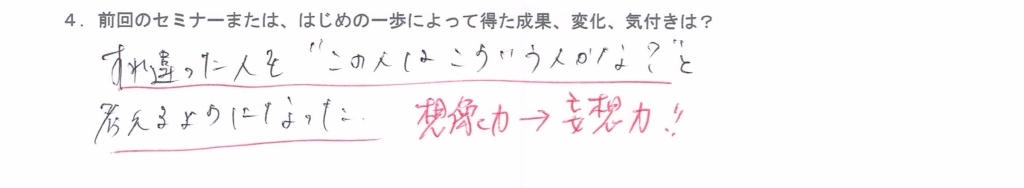 4. 前回のセミナーまたは、はじめの一歩によって得た成果、変化、気付きは？
すれ違った人を“この人はこういう人かな？”と
考えるようになった. 想像力→妄想力!!